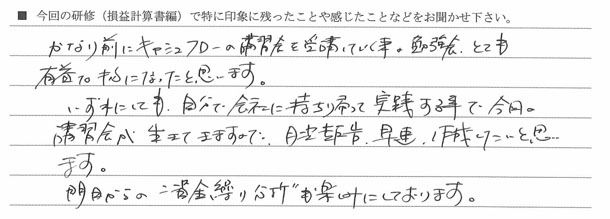 ■ 今回の研修（損益計算書編）で特に印象に残ったことや感じたことなどをお聞かせ下さい。
かなり前にキャッシュフローの講習会を受講していく事。勉強会、とても
有益なものになったと思います。
いずれにしても、自分で会社に持ち帰って実践する事で今回の
講習会が生きてきますので、月次報告、早速、作成したいと思い
ます。
明日からの“資金繰り分析”も楽しみにしております。